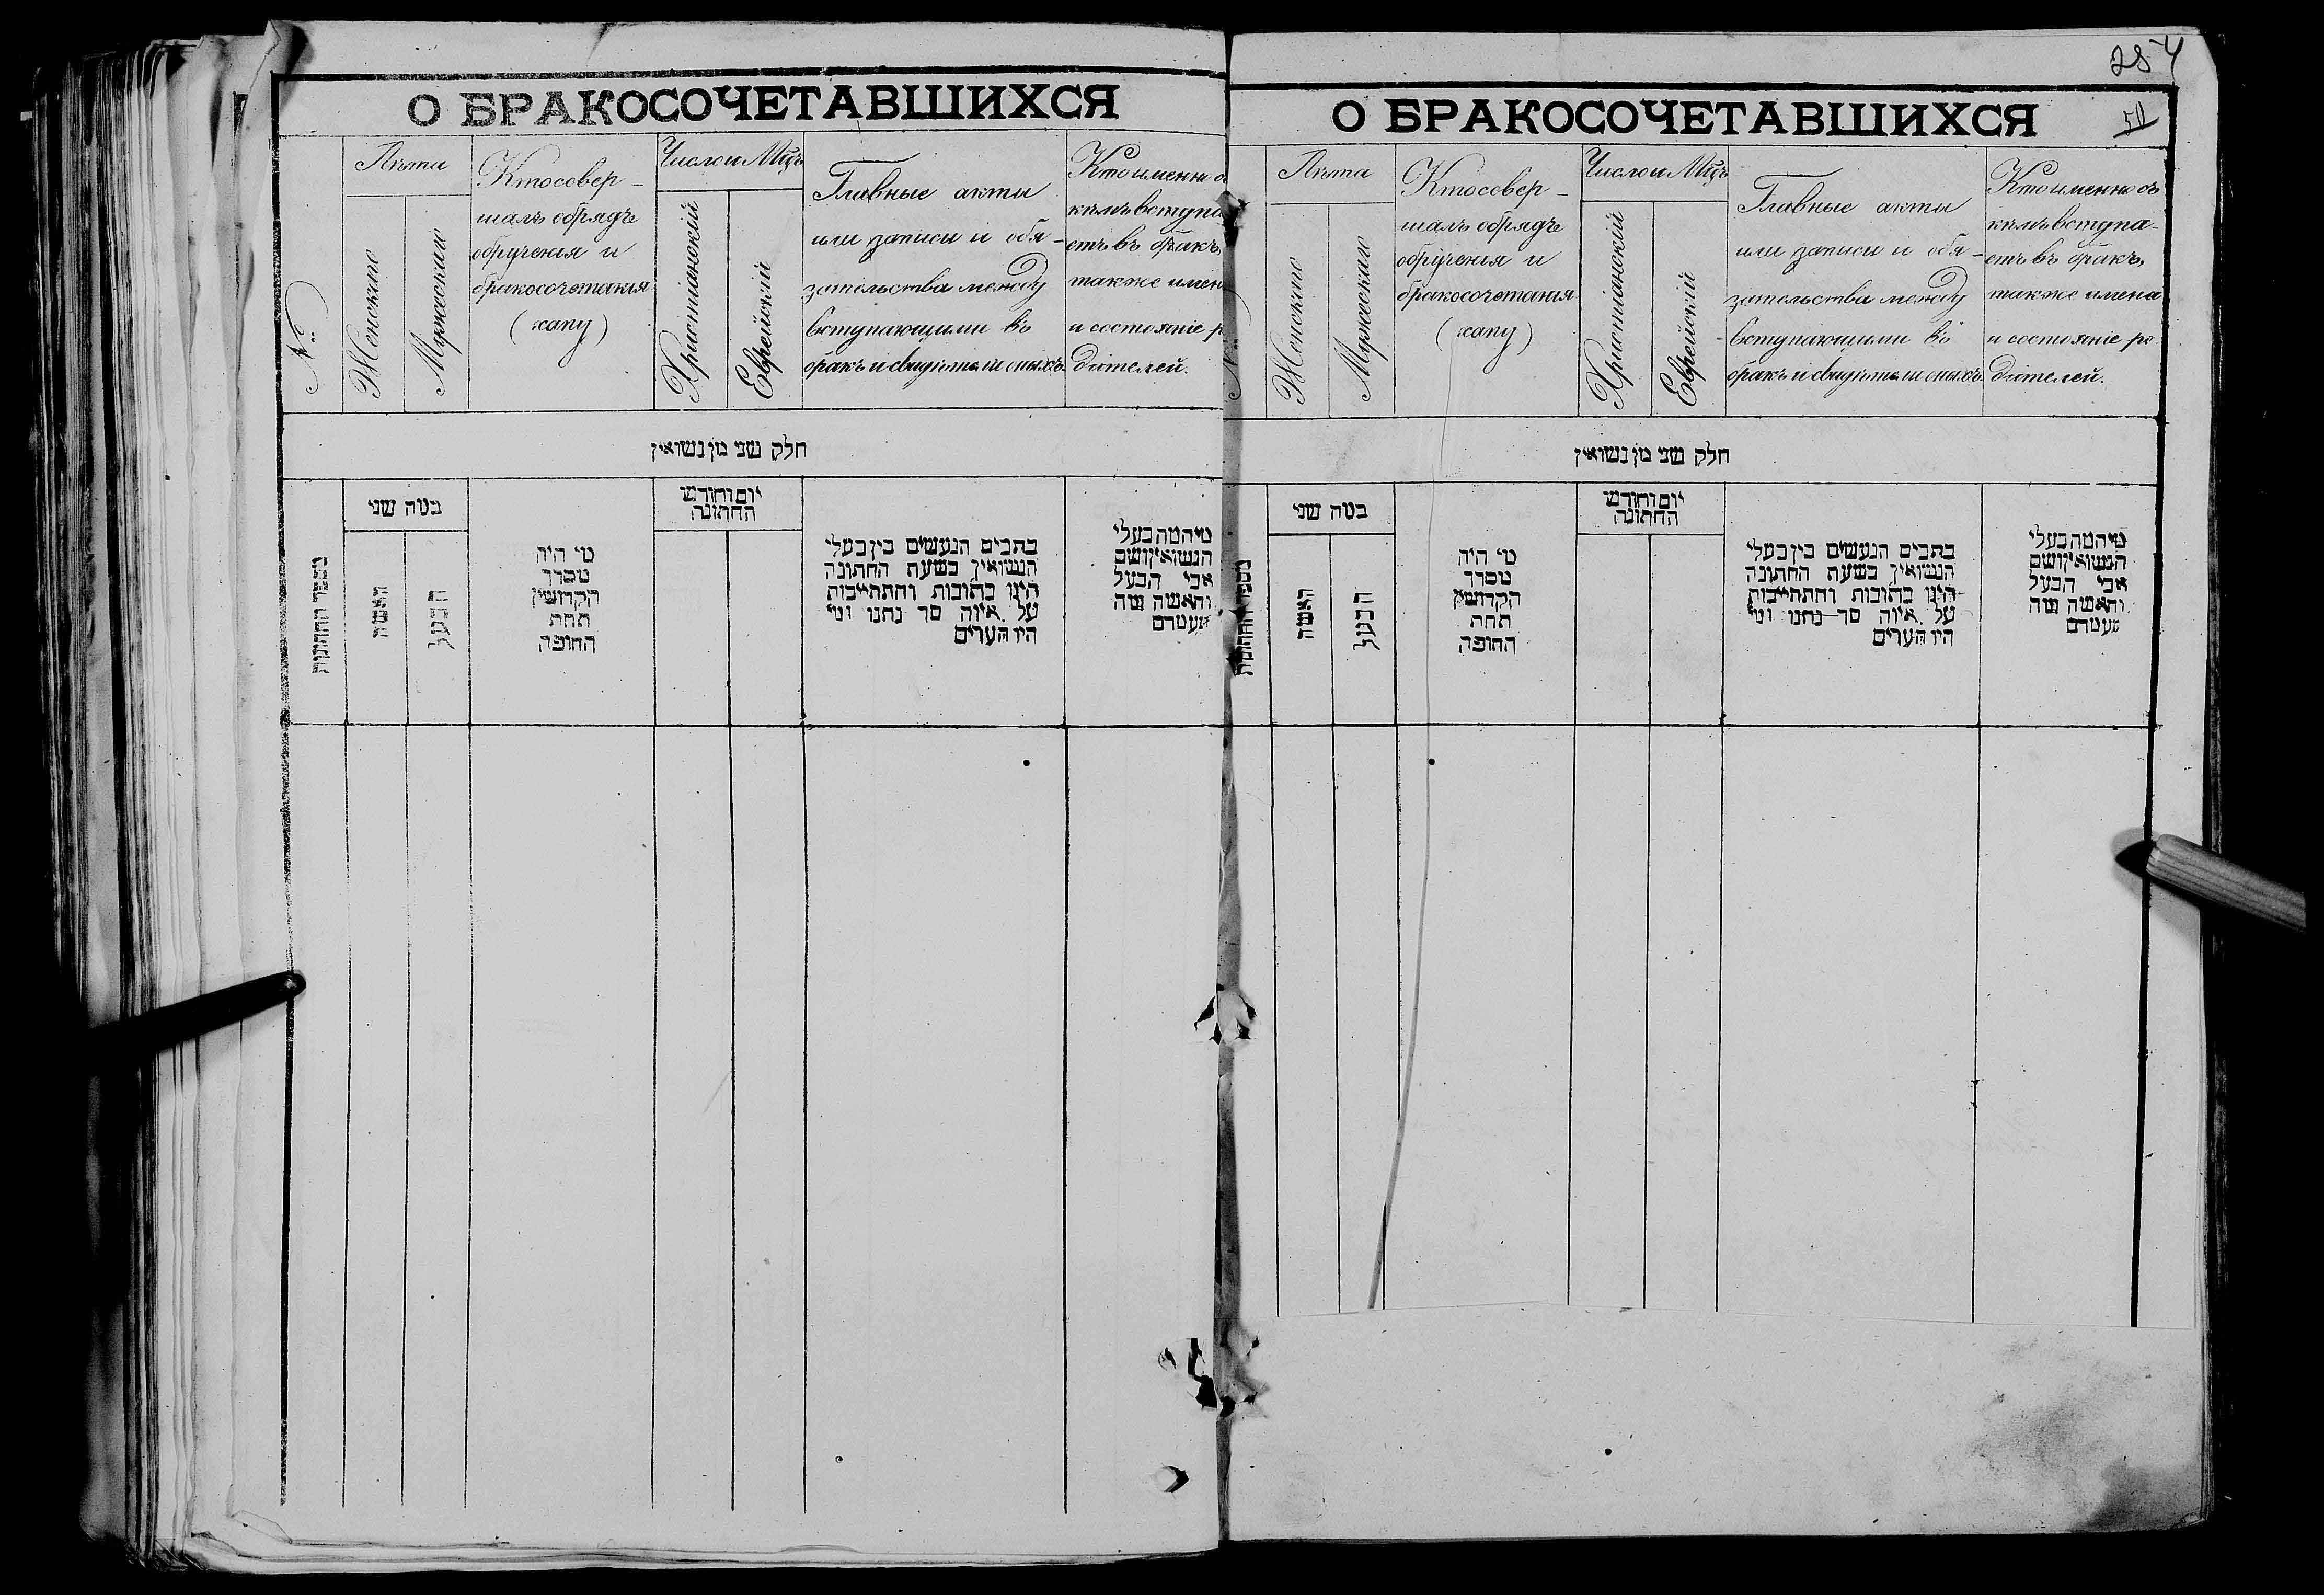 О БРАКОСОЧЕТАВШИХСЯ
№
Лѣта
Женскаго
Мужескаго
Кто совер-
шалъ обрядъ
обрученія и
бракосочетанія
(хапу)
Число и Мѣц.
Христіанскій
Еврейскій
Главные акты
или записи и обя-
зательства между
вступающими въ
бракъ и свидѣтели оныхъ.
Кто именно съ
кѣмъ вступа
етъ въ бракъ,
также имен
и состояніе р
дителей.
חלק שני מן נשואין
מספר החתונות
במה שני
האשה
הבעל
מי היה
מסדר
הקדושין
תחת
החופה
יום וחודש
החתונה
כתבים הנעשים בין בעלי
הנשואין בשעת החתונה
היינו כתובות והתחייבות
על איזה סך נתנו ומי
היו העדים
מי המה בעלי
הנשואין ושם
אבי הבעל
והאשה ומה
מעמדם
254
50
О БРАКОСОЧЕТАВШИХСЯ
№
Лѣта
Женскаго
Мужескаго
Кто совер-
шалъ обрядъ
обрученія и
бракосочетанія
(хапу)
Число и Мѣц.
Христіанскій
Еврейскій
Главные акты
или записи и обя-
зательства между
вступающими въ
бракъ и свидѣтели оныхъ.
Кто именно съ
кѣмъ вступа-
етъ въ бракъ,
также имена
и состояніе ро-
дителей.
חלק שני מן נשואין
מספר החתונות
במה שני
האשה
הבעל
מי היה
מסדר
הקדושין
תחת
החופה
יום וחודש
החתונה
כתבים הנעשים בין בעלי
הנשואין בשעת החתונה
היינו כתובות והתחייבות
על איזה סך נתנו ומי
היו העדים
מי המה בעלי
הנשואין ושם
אבי הבעל
והאשה ומה
מעמדם